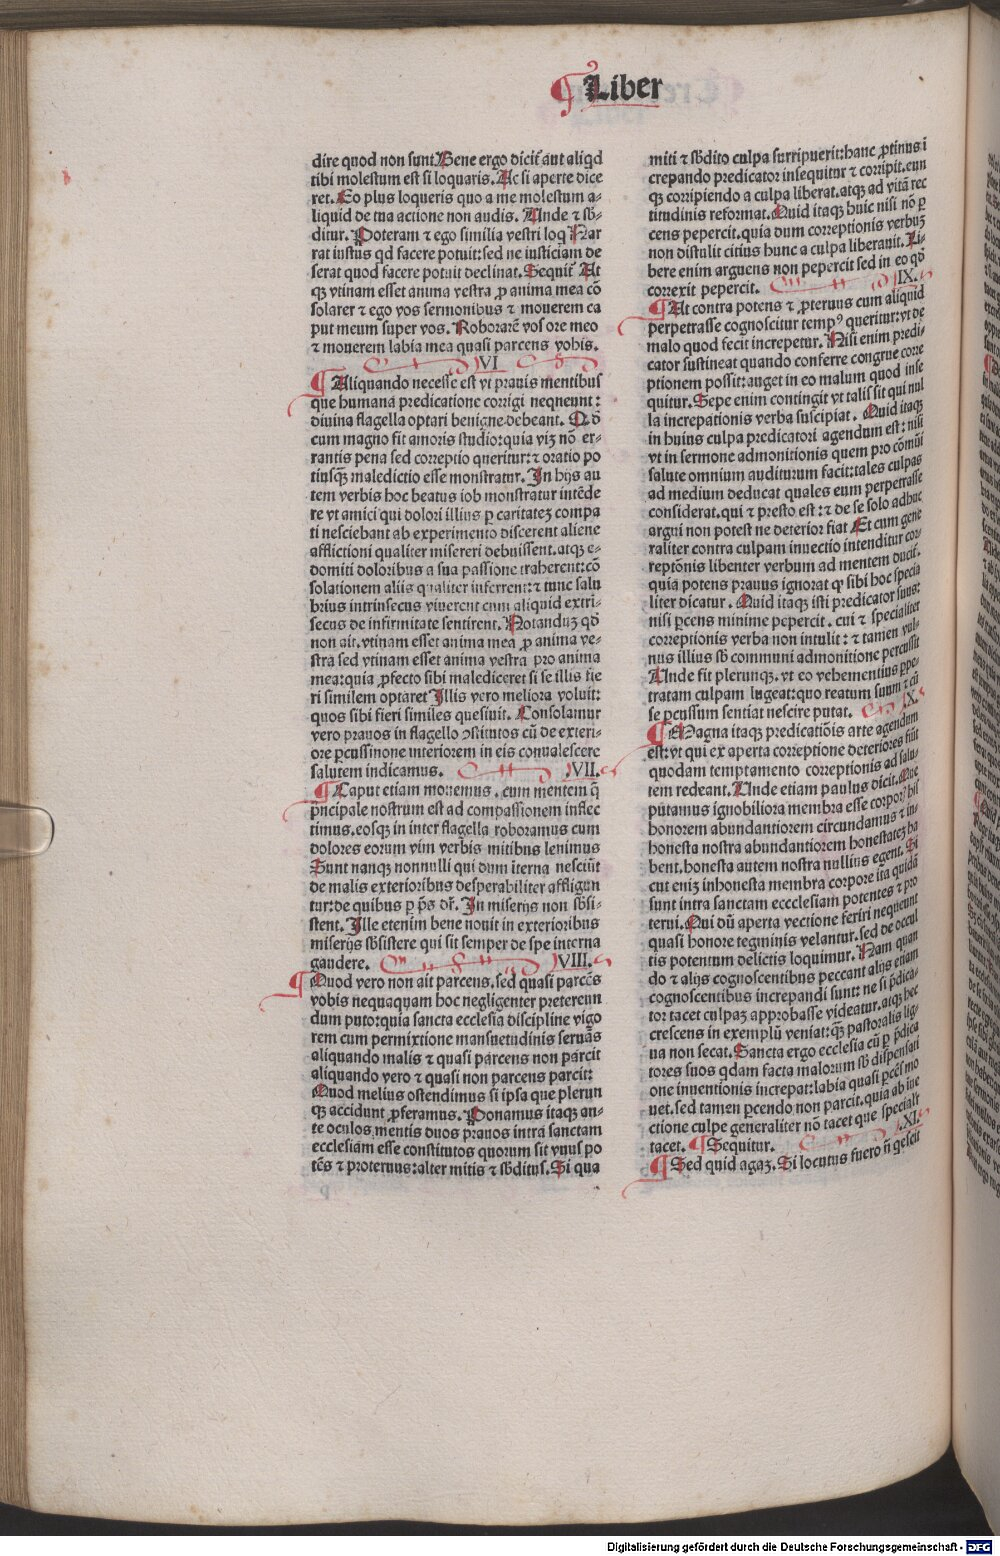 ¶ Liber
dire quod non sunt. Bene ergo dicit̃ aut aliqd
tibi molestum est si loquaris. Ac si aperte dice
ret. Eo plus loqueris quo a me molestum a-
liquid de tua actione non audis. Unde ⁊ sb̄-
ditur. Poteram ⁊ ego similia vestri loq Nar
rat iustus qd facere potuit: sed ne iusticiam de
serat quod facere potuit declinat. Sequit̃ At
qꝫ vtinam esset anima vestra ꝓ anima mea cō
solarer ⁊ ego vos sermonibus ⁊ mouerem ca
put meum super vos. Roborarē vos ore meo
⁊ mouerem labia mea quasi parcens vobis.
VI
¶ Aliquando necesse est vt prauis mentibus
que humana predicatione corrigi nequeunt:
diuina flagella optari benigne debeant. Qd̄
cum magno fit amoris studio: quia viꝫ nō er-
rantis pena sed correptio queritur: ⁊ oratio po
tiusqꝫ maledictio esse monstratur. In hijs au
tem verbis hoc beatus iob monstratur intēde
re vt amici qui dolori illius ꝑ caritateꝫ compa
ti nesciebant ab experimento discerent aliene
afflictioni qualiter misereri debuissent. atqꝫ e-
domiti doloribus a sua passione traherent: cō
solationem aliis qualiter inferrent: ⁊ tunc salu
brius intrinsecus viuerent cum aliquid extri-
secus de infirmitate sentirent. Notanduꝫ qd̄
non ait. vtinam esset anima mea ꝓ anima ve-
stra sed vtinam esset anima vestra pro anima
mea: quia ꝓfecto sibi malediceret si se illis fie
ri similem optaret Illis vero meliora voluit:
quos sibi fieri similes quesiuit. Consolamur
vero prauos in flagello ꝯstitutos cū de exteri-
ore ꝑcussinone interiorem in eis conualescere
salutem indicamus. .VII.
¶ Caput etiam mouemus. cum mentem q̄
pr̄ncipale nostrum est ad compassionem inflec
timus. eosqꝫ in inter flagella roboramus cum
dolores eorum vim verbis mitibus lenimus
Sunt nanqꝫ nonnulli qui dum īterna nesciūt
de malis exterioribus desperabiliter affligun
tur: de quibus ꝑ p̄s dr̄. In miserijs non sb̄si-
stent. Ille etenim bene nouit in exterioribus
miserijs sb̄sistere qui sit semper de spe interna
gaudere. .VIII.
¶ Quod vero non ait parcens. sed quasi parcēs
vobis nequaquam hoc negligenter pretereun
dum puto: quia sancta ecclesia discipline vigo
rem cum permixtione mansuetudinis seruās
aliquando malis ⁊ quasi parcens non parcit
aliquando vero ⁊ quasi non parcens parcit:
Quod melius ostendimus si ipsa que plerun
qꝫ accidunt ꝓferamus. Ponamus itaqꝫ an-
te oculos mentis duos prauos intra sanctam
ecclesiam esse constitutos quorum sit vnus po
tēs ⁊ proteruus: alter mitis ⁊ sb̄ditus. Si qua
miti ⁊ sb̄dito culpa surripuerit: hanc ꝓtinus ī
crepando predicator insequitur ⁊ corripit. eun
qꝫ corripiendo a culpa liberat. atqꝫ ad vitā rec
titudinis reformat. Quid itaqꝫ huic nisi nō ꝑ
cens pepercit. quia dum correptionis verbuꝫ
non distulit citius hunc a culpa liberauit. Li-
bere enim arguens non pepercit sed in eo qd̄
correxit pepercit. .IX.
¶ At contra potens ⁊ ꝓteruus cum aliquid
perpetrasse cognoscitur tempꝰ queritur: vt de
malo quod fecit increpetur. Nisi enim predi-
cator sustineat quando conferre congrue corre
ptionem possit: auget in eo malum quod inse
quitur. Sepe enim contingit vt talis sit qui nul
la increpationis verba suscipiat. Quid itaqꝫ
in huius culpa predicatori agendum est: nisi
vt in sermone admonitionis quem pro cōmūi
salute omnium auditurum facit: tales culpas
ad medium deducat quales eum perpetrasse
considerat. qui ⁊ presto est: ⁊ de se solo adhuc
argui non potest ne deterior fiat Et cum gene
raliter contra culpam inuectio intenditur cor-
reptōnis libenter verbum ad mentem ducit̃.
quia potens prauus ignorat ꝙ sibi hoc specia
liter dicatur. Quid itaqꝫ isti predicator suus:
nisi ꝑcens minime pepercit. cui ⁊ specialiter
correptionis verba non intulit: ⁊ tamen vul-
nus illius sb̄ communi admonitione percussit
Unde fit plerunqꝫ. vt eo vehementius ꝑpe-
tratam culpam lugeat: quo reatum suum ⁊ cū
se ꝑcussum sentiat nescire putat. .X.
¶ Magna itaqꝫ predicatiōis arte agendum
est: vt qui ex aperta correptione deteriores fiūt
quodam temptamento correptionis ad salu-
tem redeant. Unde etiam paulus dicit. Que
putamus ignobiliora membra esse corporꝭ his
honorem abundantiorem circundamus ⁊ in-
honesta nostra abundantiorem honestateꝫ ha
bent. honesta autem nostra nullius egent. Si
cut eniꝫ inhonesta membra corpore ita quidā
sunt intra sanctam eccclesiam potentes ⁊ pro
terui. Qui dū aperta vectione feriri nequeunt
quasi honore tegminis velantur. sed de occul
tis potentum delictis loquimur. Nam quan
do ⁊ alijs cognoscentibus peccant alijs etiam
cognoscentibus increpandi sunt: ne si p̄dica-
tor tacet culpaꝫ approbasse videatur. atqꝫ hec
crescens in exemplū veniat: qꝫ pastoralis lig-
ua non secat. Sancta ergo ecclesia cū ꝑ p̄dica
tores suos qdam facta malorum sb̄ dispensati
one inuentionis increpat: labia quasi ꝑcēs mo
uet. sed tamen ꝑcendo non parcit. quia ab iue
ctione culpe generaliter nō tacet que specialr̄
tacet. ¶ Sequitur. .XI.
¶ Sed quid agaꝫ. Si locutus fuero n̄ q̄escit
Digitalisierung gefördert durch die Deutsche Forschungsgemeinschaft - DFG